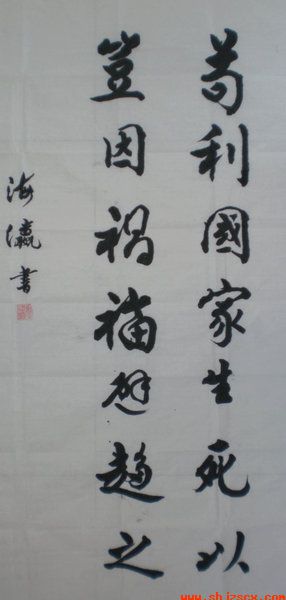 苟利國家生死以
豈因禍福避趨之
海瀛書
www.shjzscx.com